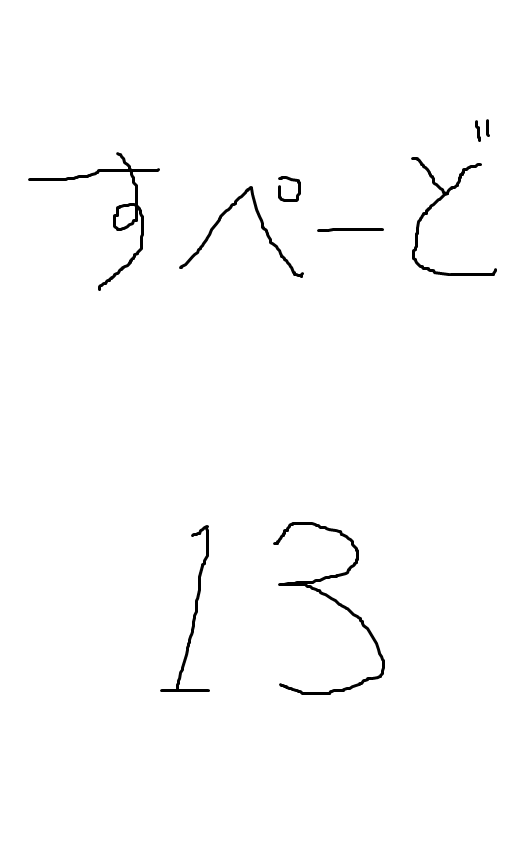 すぺーど
13